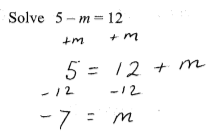 Solve 5 – m = 12
+m + m
5 = 12 + m
-12 -12
-7 = m